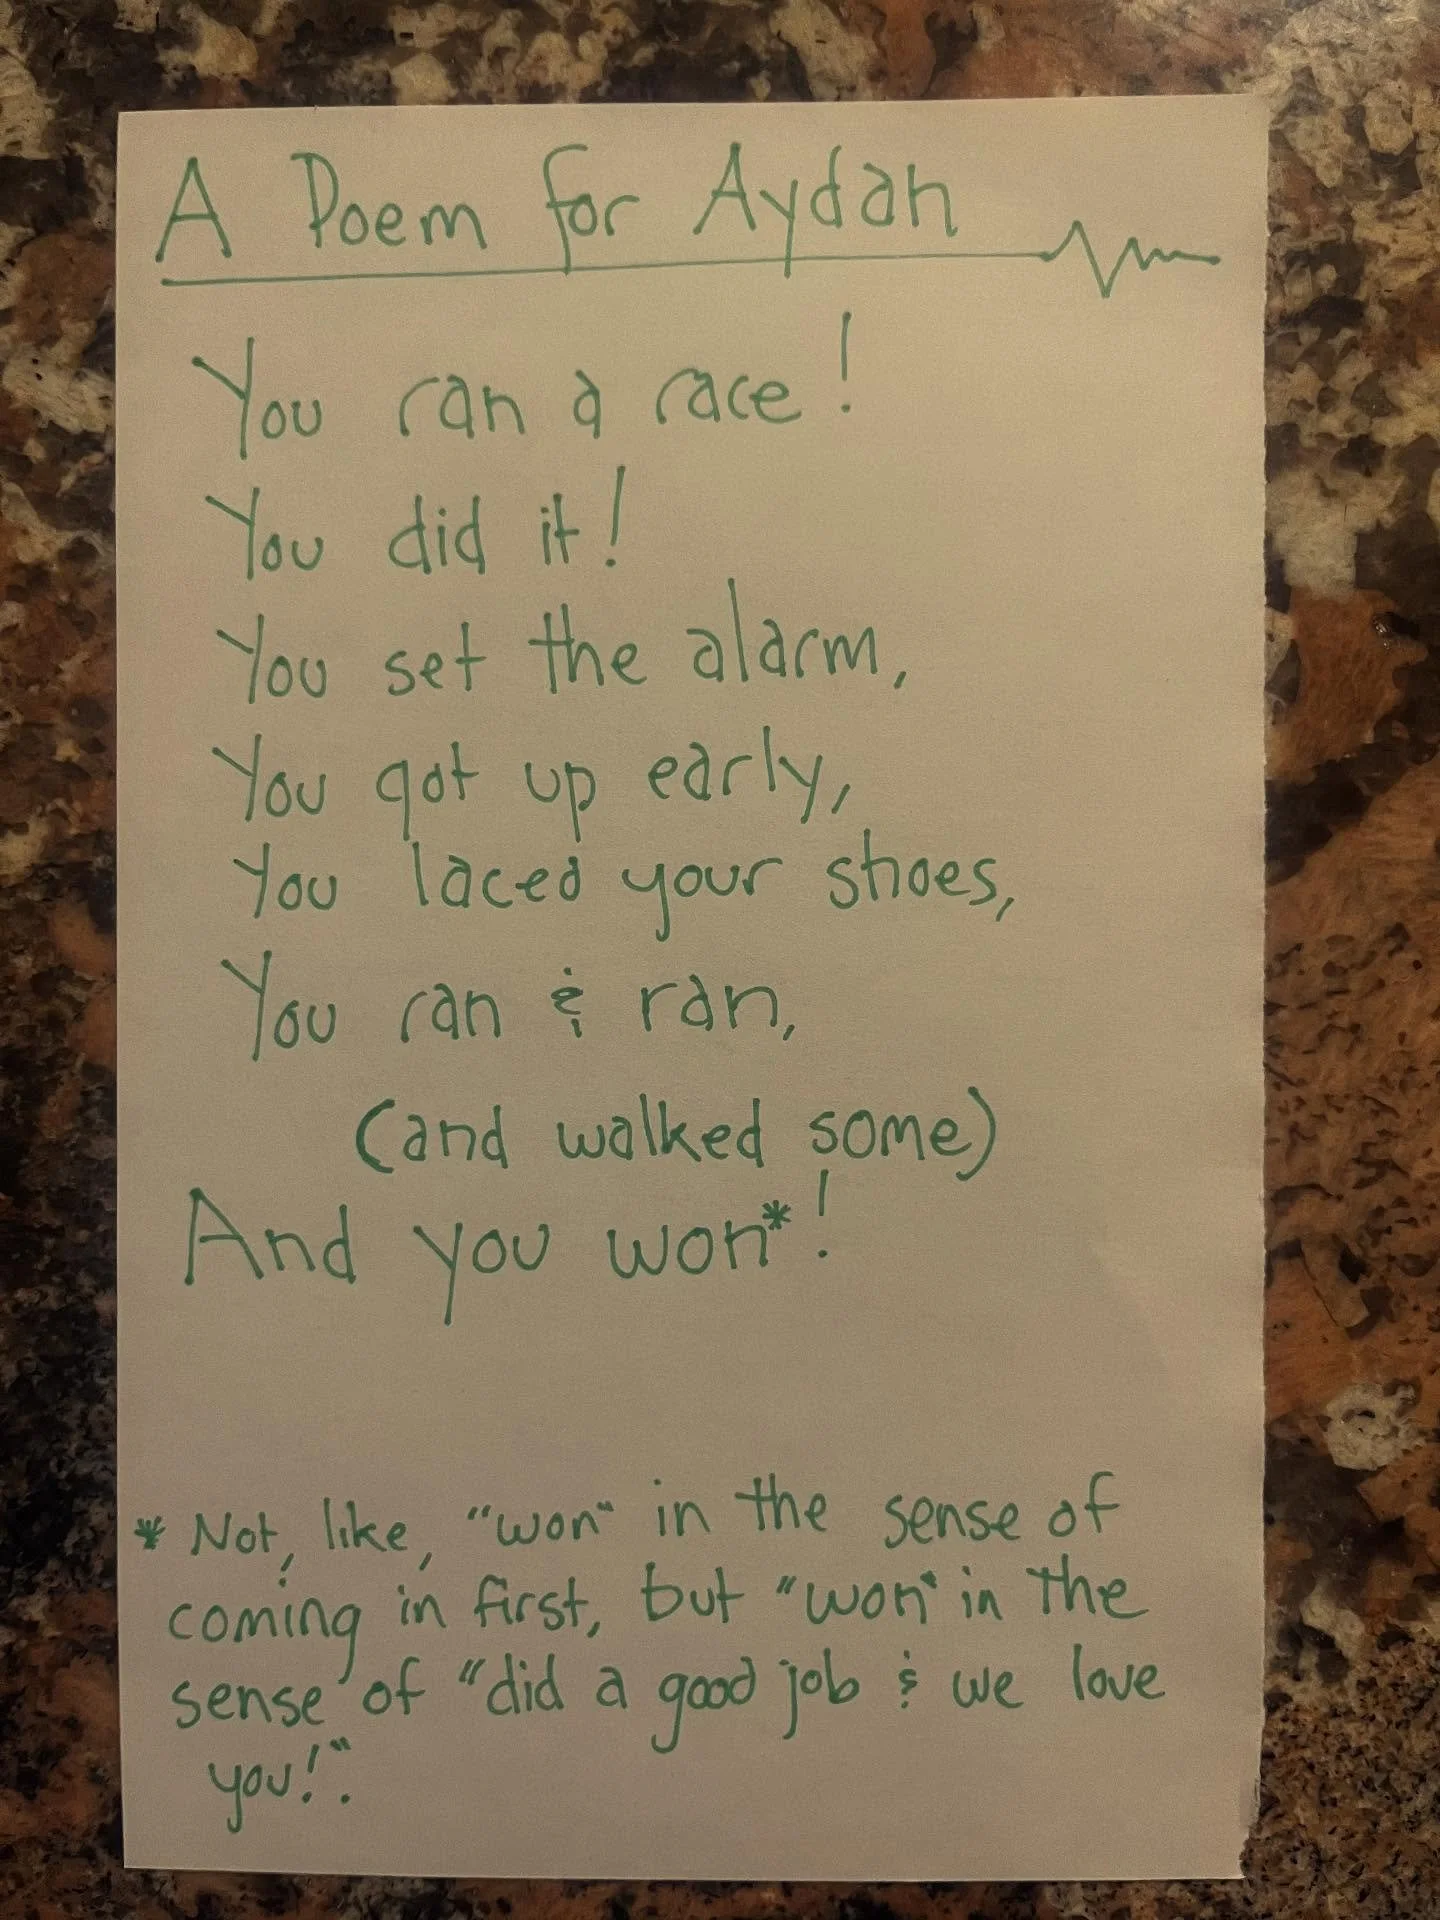 A Poem for Aydan
You ran a race!
You did it!
You set the alarm,
You got up early,
You laced your shoes,
You ran & ran,
(and walked some)
And you won*!
* Not, like, "won" in the sense of
coming in first, but "won" in the
sense of "did a good job & we love
you!".